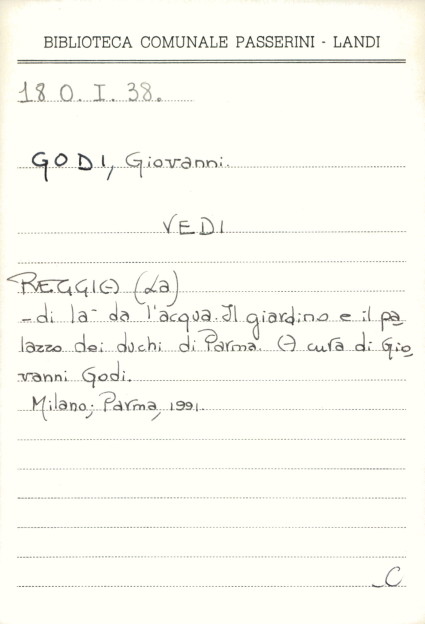 BIBLIOTECA COMUNALE PASSERINI - LANDI
180. I. 38.
GODI, Giovanni.
VEDI
REGGIA (La)
- di là da l'acqua. Il giardino e il pa
lazzo dei duchi di Parma. A cura di Gio
vanni Godi.
Milano; Parma, 1991.
_C